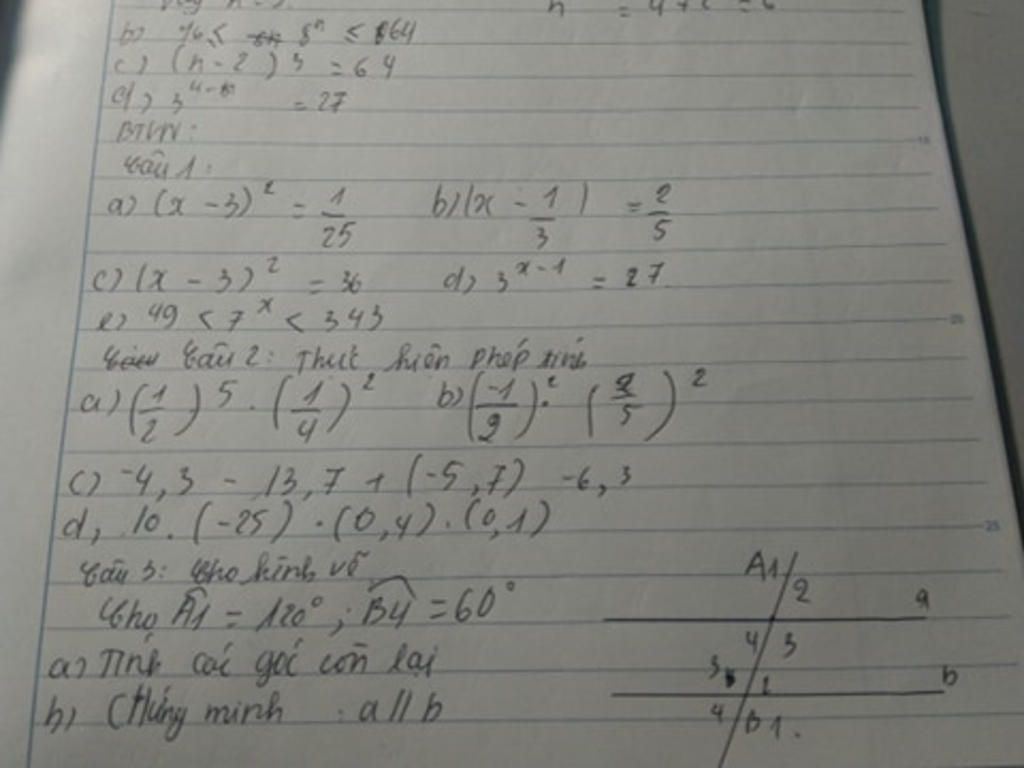 n = 4 + 2 = 6
b) 16 ≤ 8ⁿ ≤ 64
c) (n - 2) 3 = 64
d) 3⁴⁻ⁿ = 27
BTVN:
Câu 1:
a) (x - 3)² = 1/25 b) (x - 1/3) = 2/5
c) (x - 3)² = 36 d) 3ˣ⁻¹ = 27
e) 49 < 7ˣ < 343
Câu 2: Thực hiện phép tính
a) (1/2) 5 . (1/4)² b) (-1/2)² . (2/5)²
c) -4,3 - 13,7 + (-5,7) -6,3
d, 10. (-25) . (0,4) . (0,1)
Câu 3: Cho hình vẽ
Cho A1 = 120° ; B4 = 60°
a) Tính các góc còn lại
b) Chứng minh : a // b
A1 2
a
4 3
3 2 b
4 B 1.